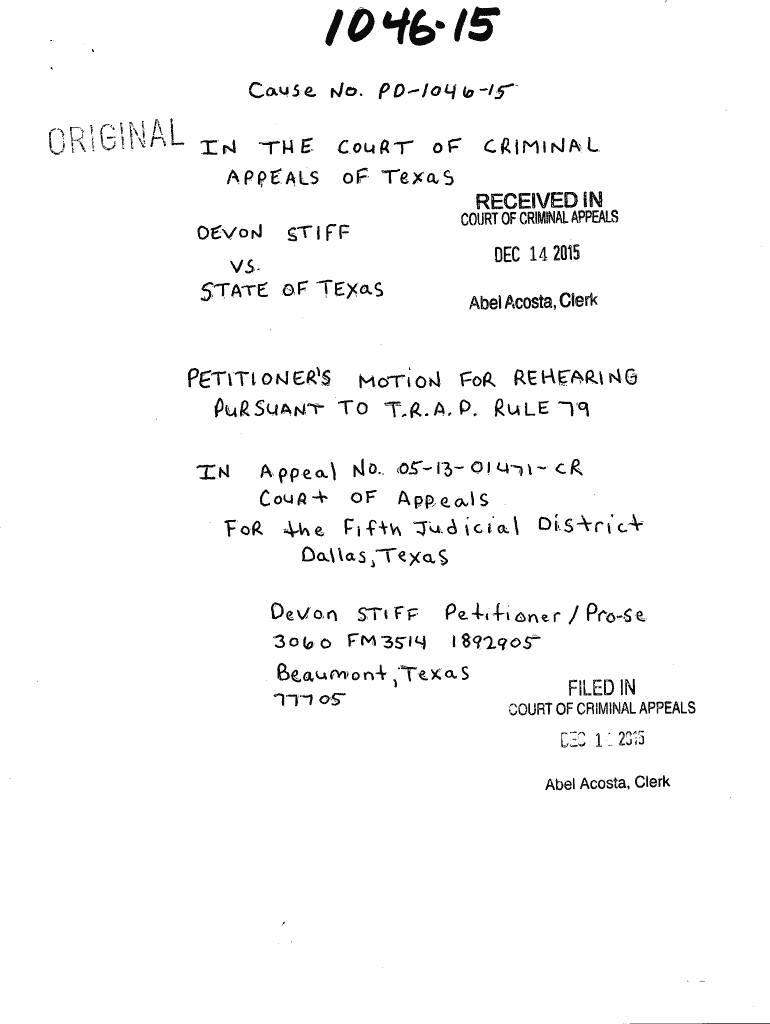 1046-15
Cause No. PD-1046-15
ORIGINAL
IN THE COURT OF CRIMINAL
APPEALS OF TexaS
DEVON STIFF
VS.
STATE OF TEXaS
RECEIVED IN
COURT OF CRIMINAL APPEALS
DEC 14 2015
Abel Acosta, Clerk
PETITIONER'S MOTION FOR REHEARING
PURSUANT TO T.R.A.P. RULE 79
IN Appeal No. 05-13-01471-CR
COURt OF Appeals
FOR the Fifth Judicial District
Dallas, Texas
Devon STIFF Petitioner / Pro-Se
3060 FM3514 1892905
Beaumont, Texas
77705
FILED IN
COURT OF CRIMINAL APPEALS
DEC 2015
Abel Acosta, Clerk